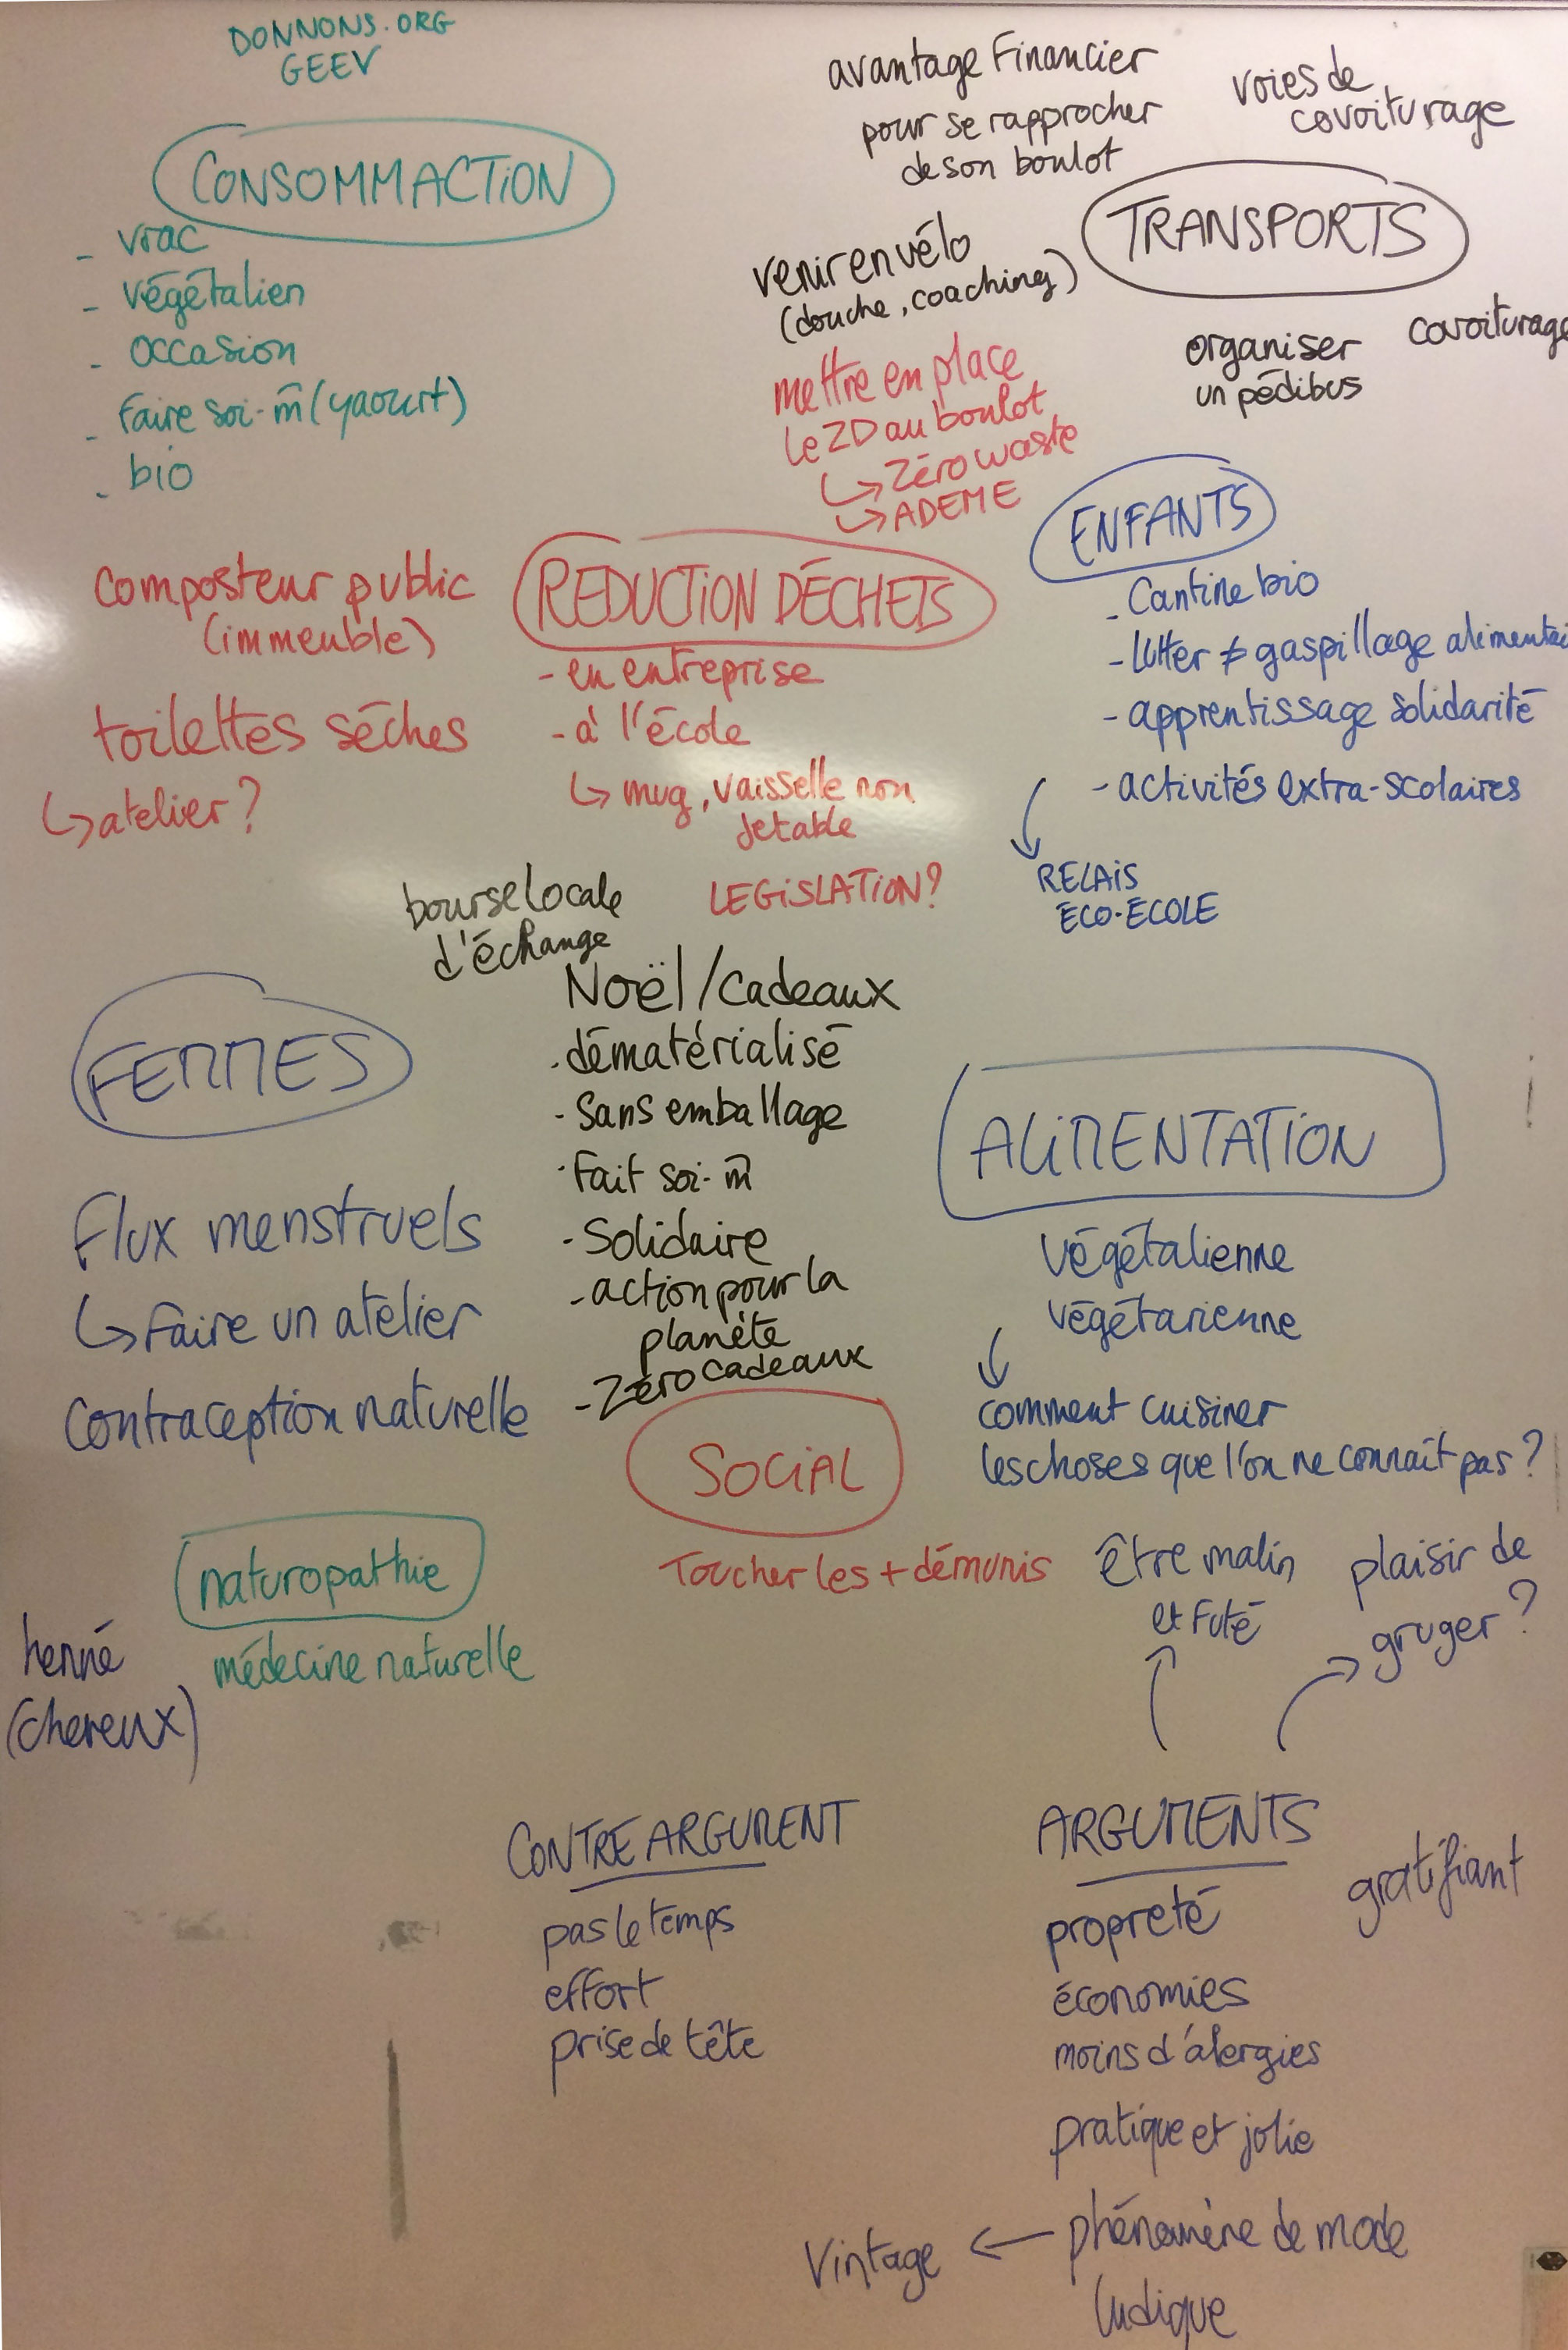 DONNONS.ORG
GEEV
CONSOMMACTION
- vrac
- végétalien
- occasion
- faire soi-m̄ (yaourt)
- bio
avantage Financier
pour se rapprocher
de son boulot
voies de
covoiturage
TRANSPORTS
venir en vélo
(douche, coaching)
organiser
un pédibus
covoiturage
mettre en place
le ZD au boulot
↳ Zéro waste
↳ ADEME
ENFANTS
- Cantine bio
- lutter ≠ gaspillage alimentai
- apprentissage solidarité
- activités extra-scolaires
RELAIS
ÉCO-ÉCOLE
composteur public
(immeuble)
toilettes sèches
↳ atelier ?
REDUCTION DÉCHETS
- en entreprise
- à l'école
↳ mug, vaisselle non
jetable
LEGISLATION ?
bourse locale
d'échange
Noël / cadeaux
- dématérialisé
- sans emballage
- fait soi-m̄
- Solidaire
- action pour la
planète
- Zéro cadeaux
FEMMES
Flux menstruels
↳ Faire un atelier
contraception naturelle
ALIMENTATION
végétalienne
végétarienne
↓
comment cuisiner
les choses que l'on ne connaît pas ?
SOCIAL
Toucher les + démunis
naturopathie
médecine naturelle
henné
(cheveux)
être malin
et futé
plaisir de
gruger ?
CONTRE ARGUMENT
pas le temps
effort
prise de tête
ARGUMENTS
gratifiant
propreté
économies
moins d'alergies
pratique et jolie
Vintage ← phénomène de mode
ludique